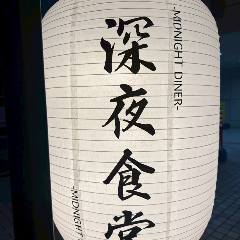 -MIDNIGHT DINER-
深夜食堂
-MIDNIGHT